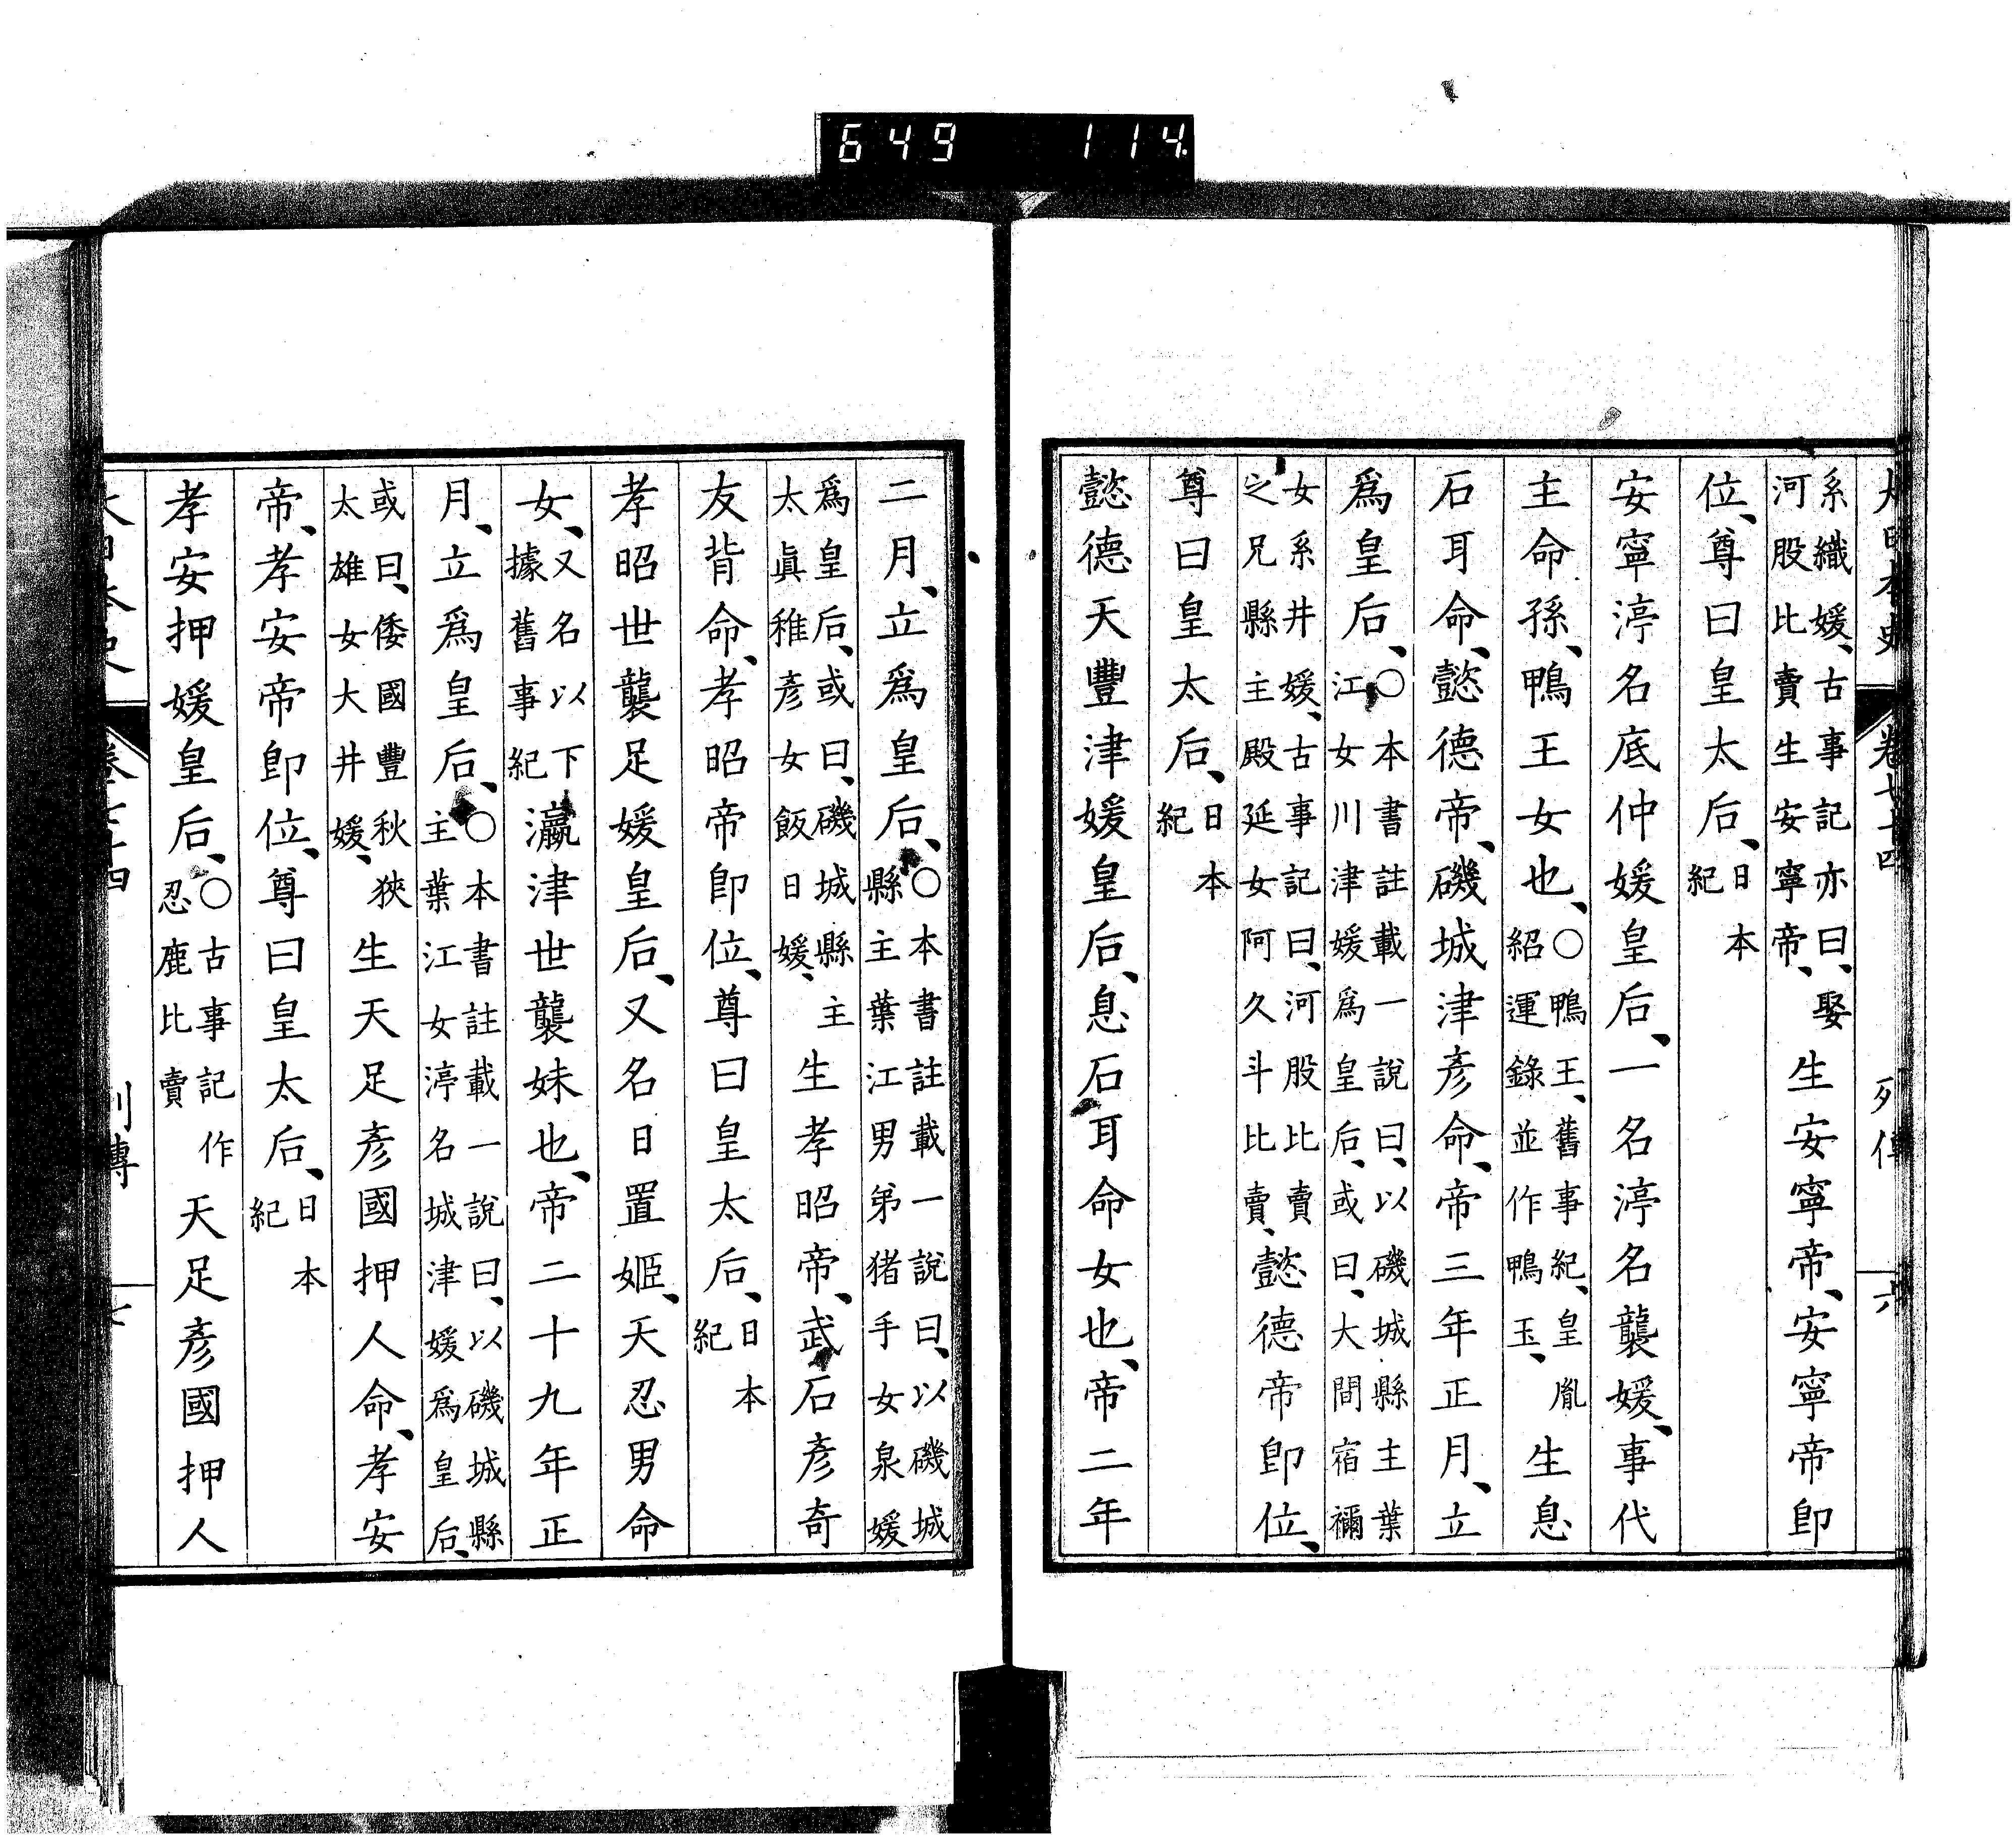 649 114
大日本史 卷七十四 列傳 六
系織媛、古事記亦曰、娶
河股比賣生安寧帝、生安寧帝、安寧帝卽
位、尊曰皇太后、日本
紀
安寧渟名底仲媛皇后、一名渟名襲媛、事代
主命孫、鴨王女也、〇鴨王、舊事紀、皇胤
紹運錄並作鴨玉、生息
石耳命、懿德帝、磯城津彥命、帝三年正月、立
爲皇后、〇本書註載一說曰、以磯城縣主葉
江女川津媛爲皇后、或曰、大間宿禰
女系井媛、古事記曰、河股比賣
之兄縣主殿延女阿久斗比賣、懿德帝卽位、
尊曰皇太后、日本
紀
懿德天豐津媛皇后、息石耳命女也、帝二年
二月、立爲皇后、〇本書註載一說曰、以磯城
縣主葉江男弟猪手女泉媛
爲皇后、或曰、磯城縣主
太眞稚彥女飯日媛、生孝昭帝、武石彥奇
友背命、孝昭帝卽位、尊曰皇太后、日本
紀
孝昭世襲足媛皇后、又名日置姬、天忍男命
女、又名以下
據舊事紀瀛津世襲妹也、帝二十九年正
月、立爲皇后、〇本書註載一說曰、以磯城縣
主葉江女渟名城津媛爲皇后、
或曰、倭國豐秋狹
太雄女大井媛、生天足彥國押人命、孝安
帝、孝安帝卽位、尊曰皇太后、日本
紀
孝安押媛皇后、〇古事記作
忍鹿比賣天足彥國押人
大日本史 卷七十四 列傳 七